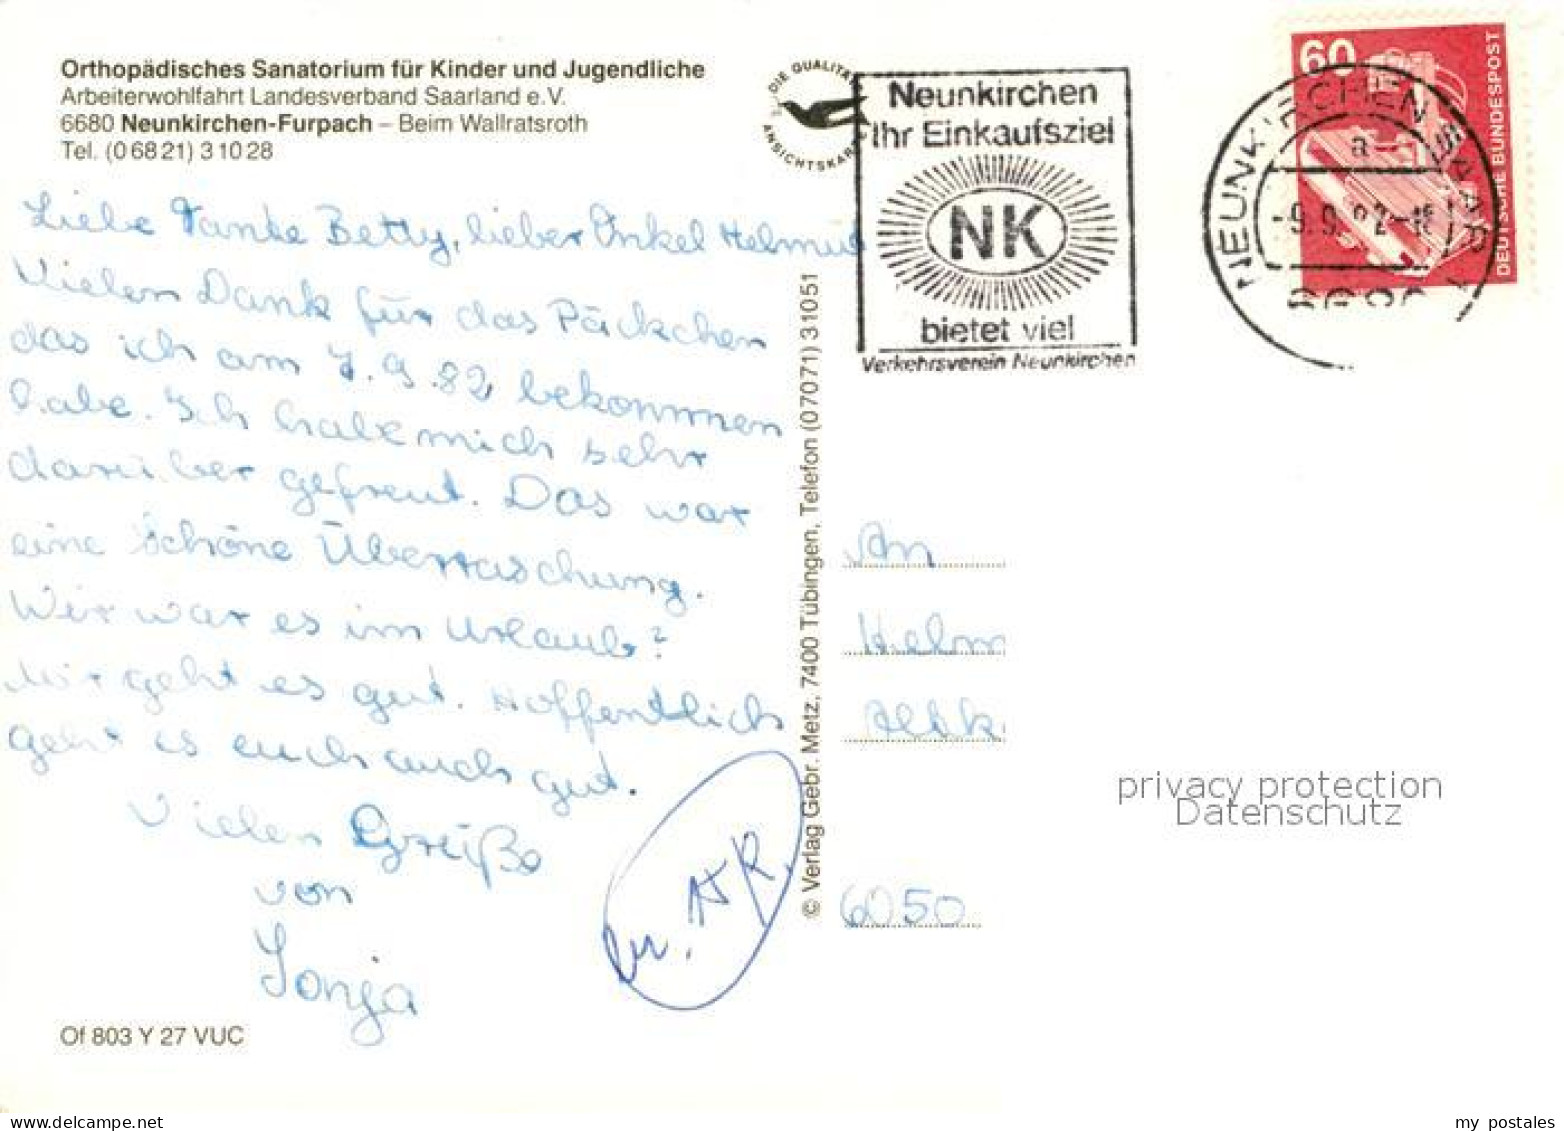 Orthopädisches Sanatorium für Kinder und Jugendliche
Arbeiterwohlfahrt Landesverband Saarland e.V.
6680 Neunkirchen-Furpach – Beim Wallratsroth
Tel. (0 68 21) 3 10 28
Liebe Tante Betty, lieber Onkel Helmut
Vielen Dank für das Päckchen
das ich am 7.9.82 bekommen
habe. Ich habe mich sehr
darüber gefreut. Das war
eine schöne Überraschung.
Wir war es im Urlaub?
Mir geht es gut. Hoffentlich
geht es euch auch gut.
Vielen Grüße
von
Sonja
Of 803 Y 27 VUC
© Verlag Gebr. Metz, 7400 Tübingen, Telefon (07071) 31051
DIE QUALITÄTS
ANSICHTSKARTE
Neunkirchen
Ihr Einkaufsziel
NK
bietet viel
Verkehrsverein Neunkirchen
NEUNKIRCHEN, SAAR 1
a
-9.9.82-18
6680
60
DEUTSCHE BUNDESPOST
An
Helm
6050
privacy protection
Datenschutz
my postales